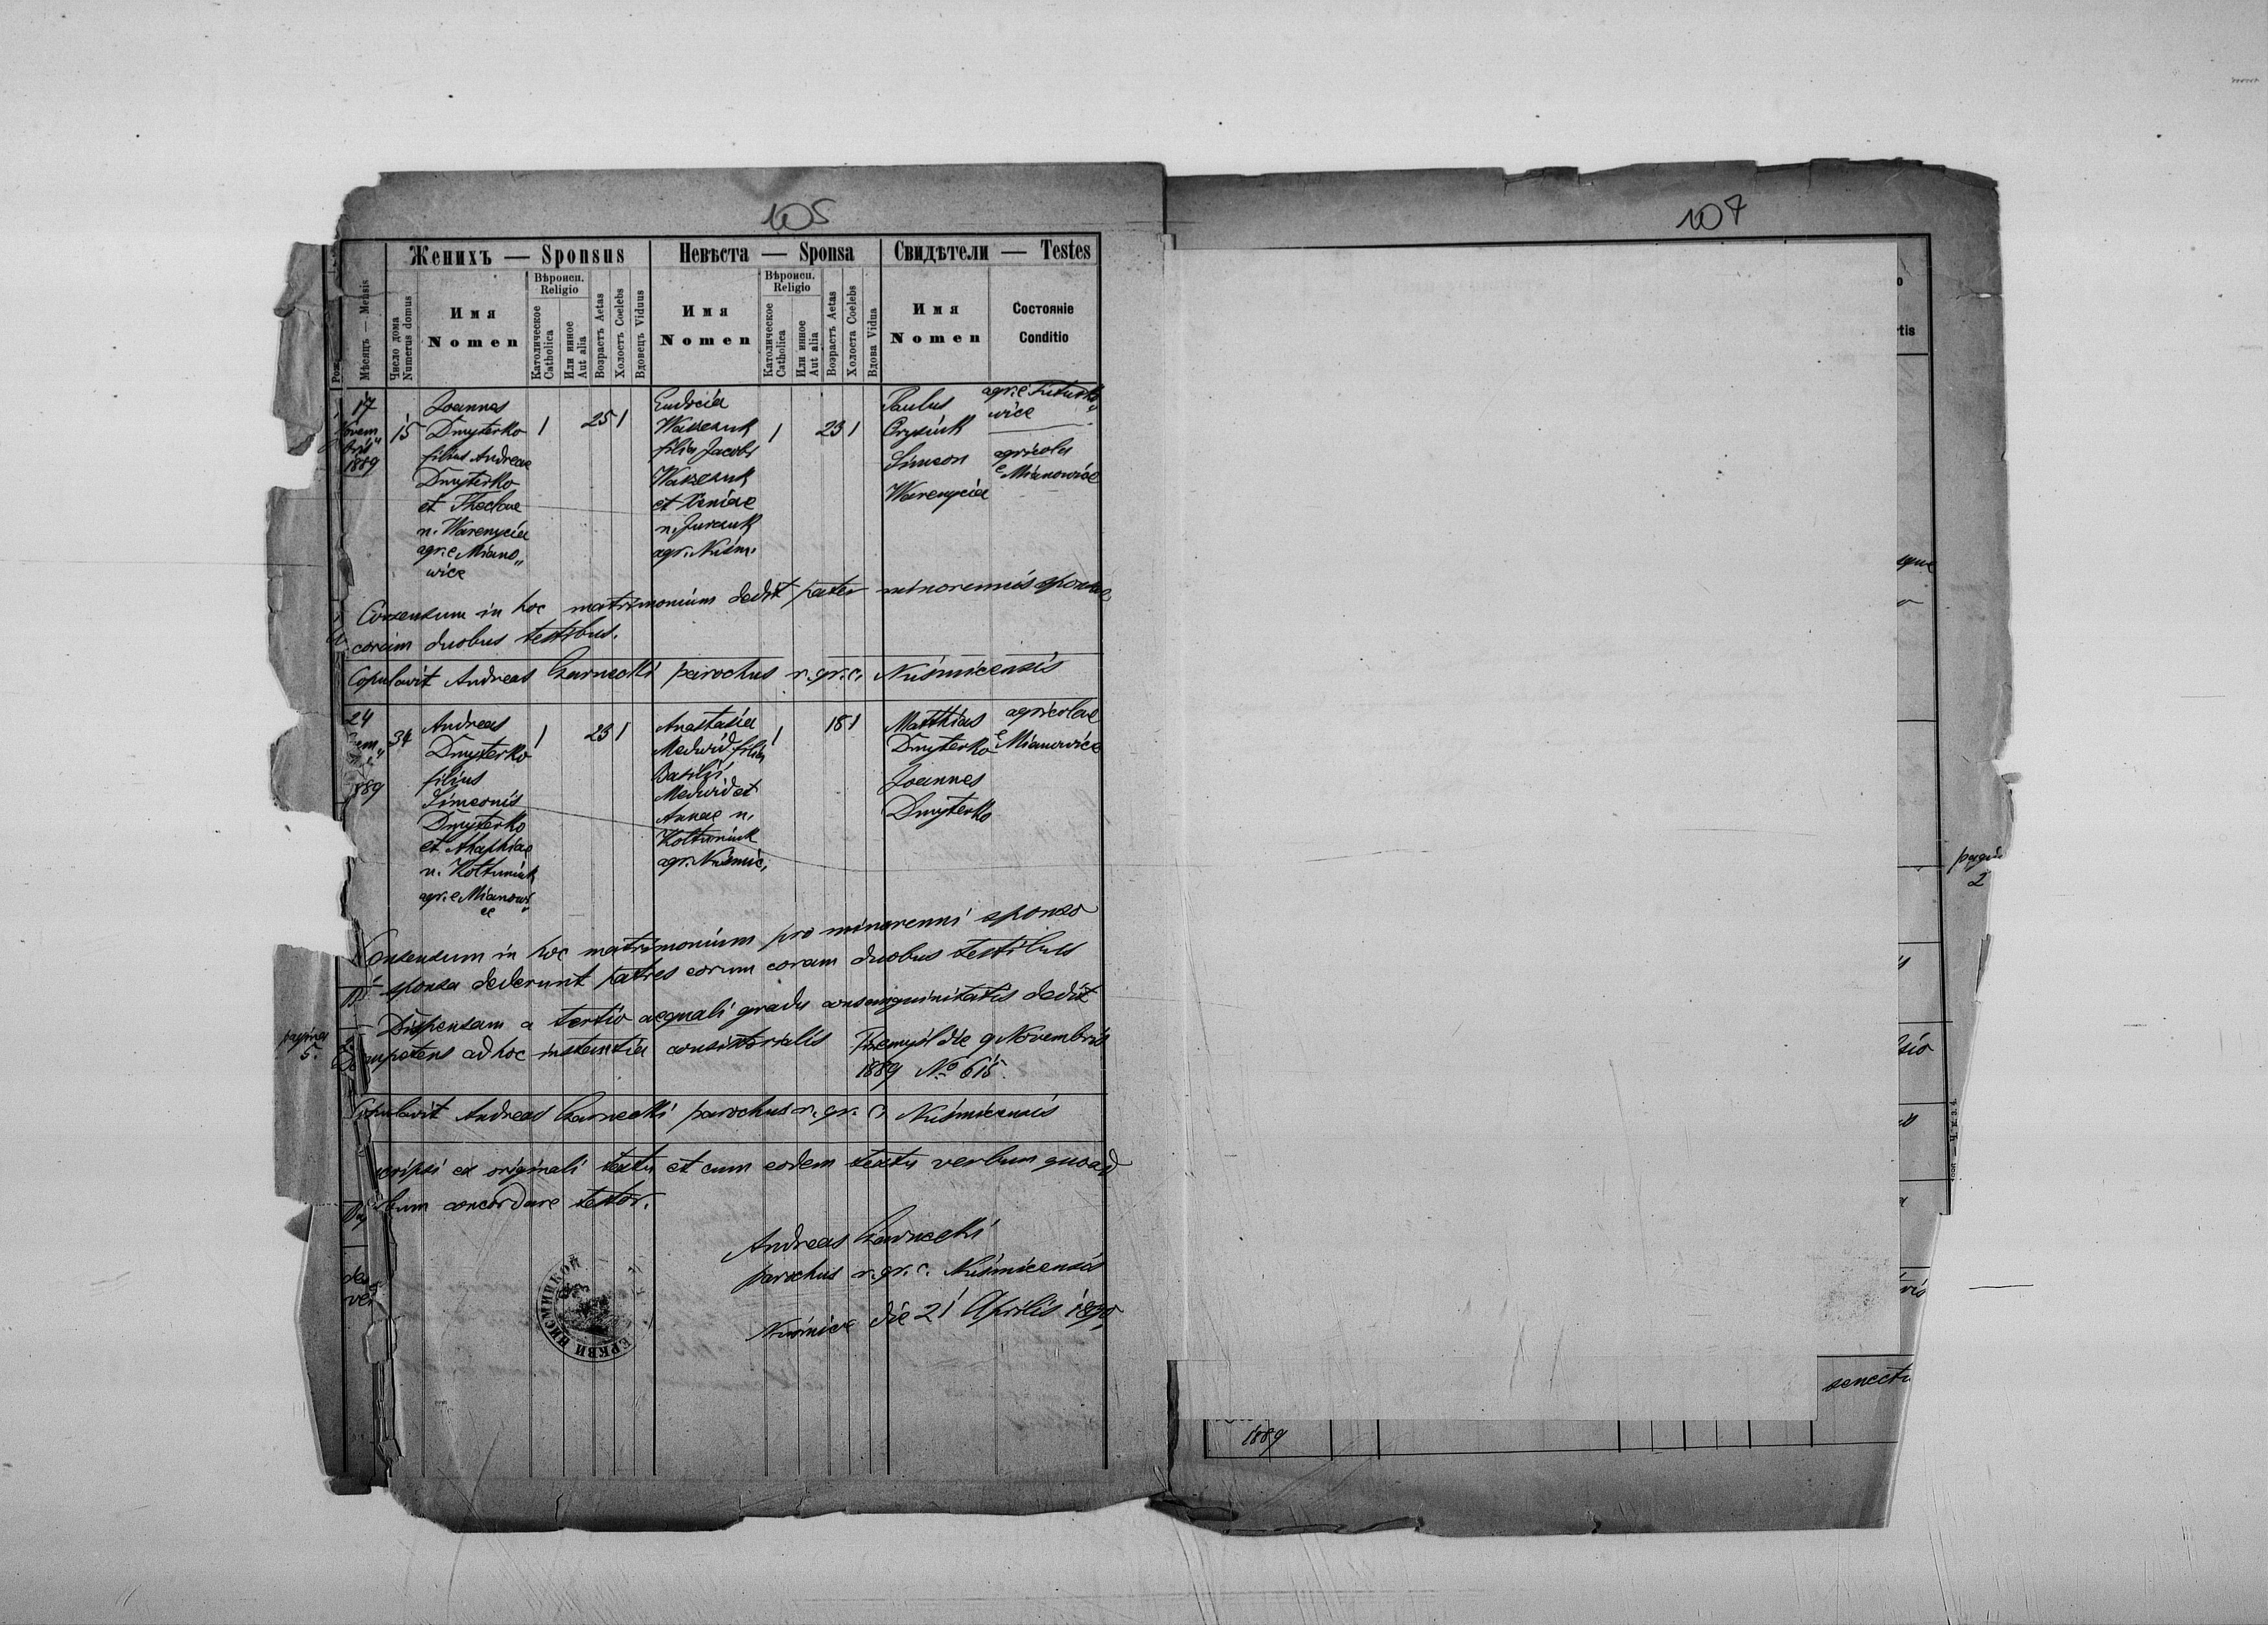 105
107
Женихъ — Sponsus
Невѣста — Sponsa
Свидѣтели — Testes
Мѣсяцъ — Mensis
Число дома
Numerus domus
Имя
Nomen
Вѣроисп.
Religio
Католическое
Catholica
Или инное
Aut alia
Возрастъ Aetas
Холостъ Coelebs
Вдовецъ Viduus
Имя
Nomen
Вѣроисп.
Religio
Католическое
Catholica
Или инное
Aut alia
Возрастъ Aetas
Холоста Coelebs
Вдова Vidua
Имя
Nomen
Состояніе
Conditio
17
Novem„
bris
1889
15
Joannes
Dmyterko
filius Andreae
Dmyterko
et Theclae
n. Warenycia
agr. e Miano„
wice
1
25 1
Eudocia
filia Jacobi
et Xeniae
n. Jurczuk
agr. Nusm.
1
23 1
Paulus
Simeon
Warenycia
agr. e
wice
agricola
e Mianowice
Consensum in hoc matrimonium dedit pater minorennis sponsae
coram duobus testibus.
Copulavit Andreas Czarnecki parochus r. gr. c. Nusmicensis
24
889
34
Andreas
Dmyterko
filius
Simeonis
Dmyterko
et Ahaphiae
n. Koltuniuk
agr. e Mianowi„
ce
1
23 1
Anastasia
Medwid filia
Basilii
Medwid et
Annae n.
Koltuniuk
agr. Nusmic.
1
18 1
Matthias
Dmyterko
Joannes
Dmyterko
agricolae
e Mianowice
Consensum in hoc matrimonium pro minorenni sponso
sponsa dederunt patres eorum coram duobus testibus
Dispensam a tertio aequali gradu consanguinitatis dedit
competens ad hoc instantia consistorialis Przemysl die 9 Novembris
1889 No 615.
pagina
5.
Copulavit Andreas Czarnecki parochus r. gr. c. Nusmicensis
scripsi ex originali textu et cum eodem textu verbum quoad
bum concordare testor.
Andreas Czarnecki
parochus r. gr. c. Nusmicensis
Nusmice die 21 Aprilis 1890
ЦЕРКВИ НИСМИЦКОЙ
tis
2
senectu
1889